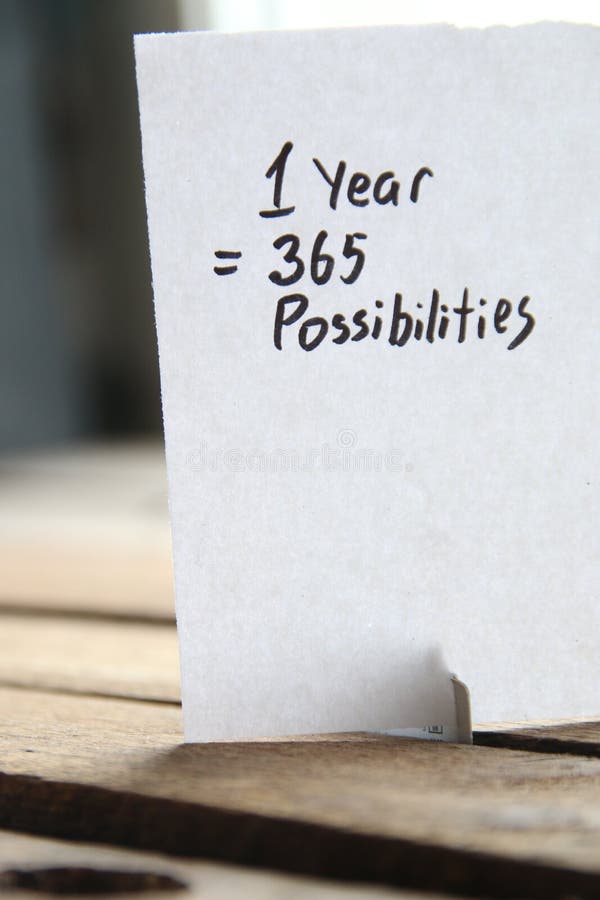 1 Year
= 365
Possibilities
dreamstime